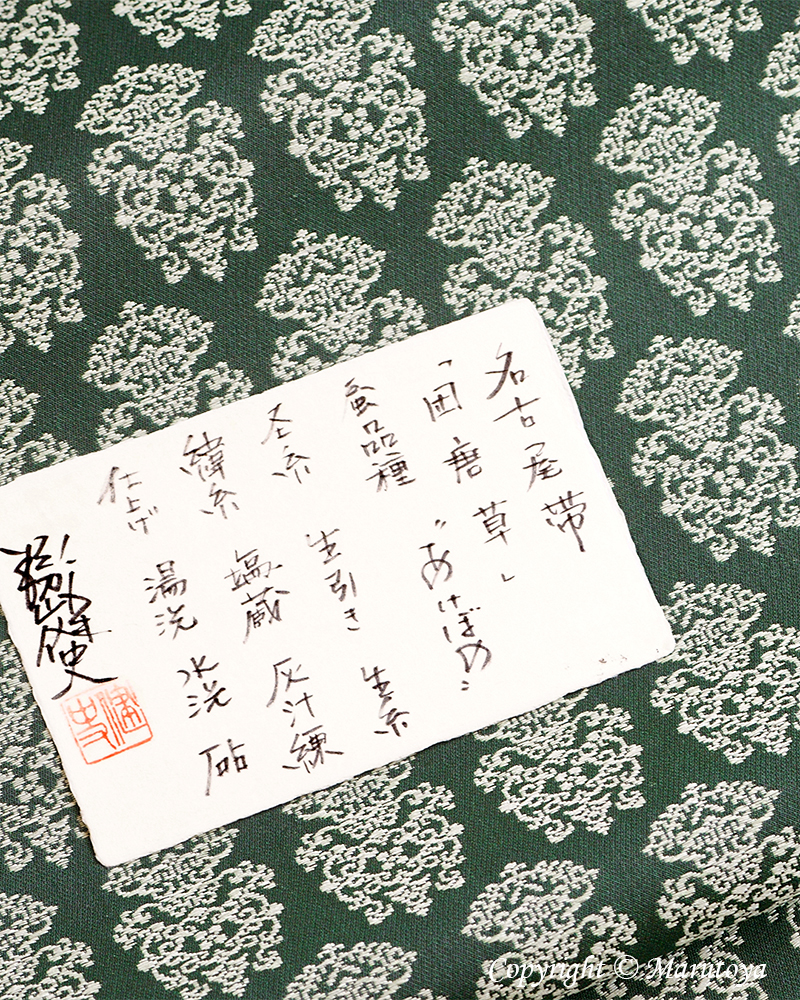 名古屋帯
「団唐草」
蚕品種 "あけぼの"
圣糸 生引き 生糸
緯糸 塩蔵 灰汁練
仕上げ 湯洗 水洗 砧
Copyright © Marutoya